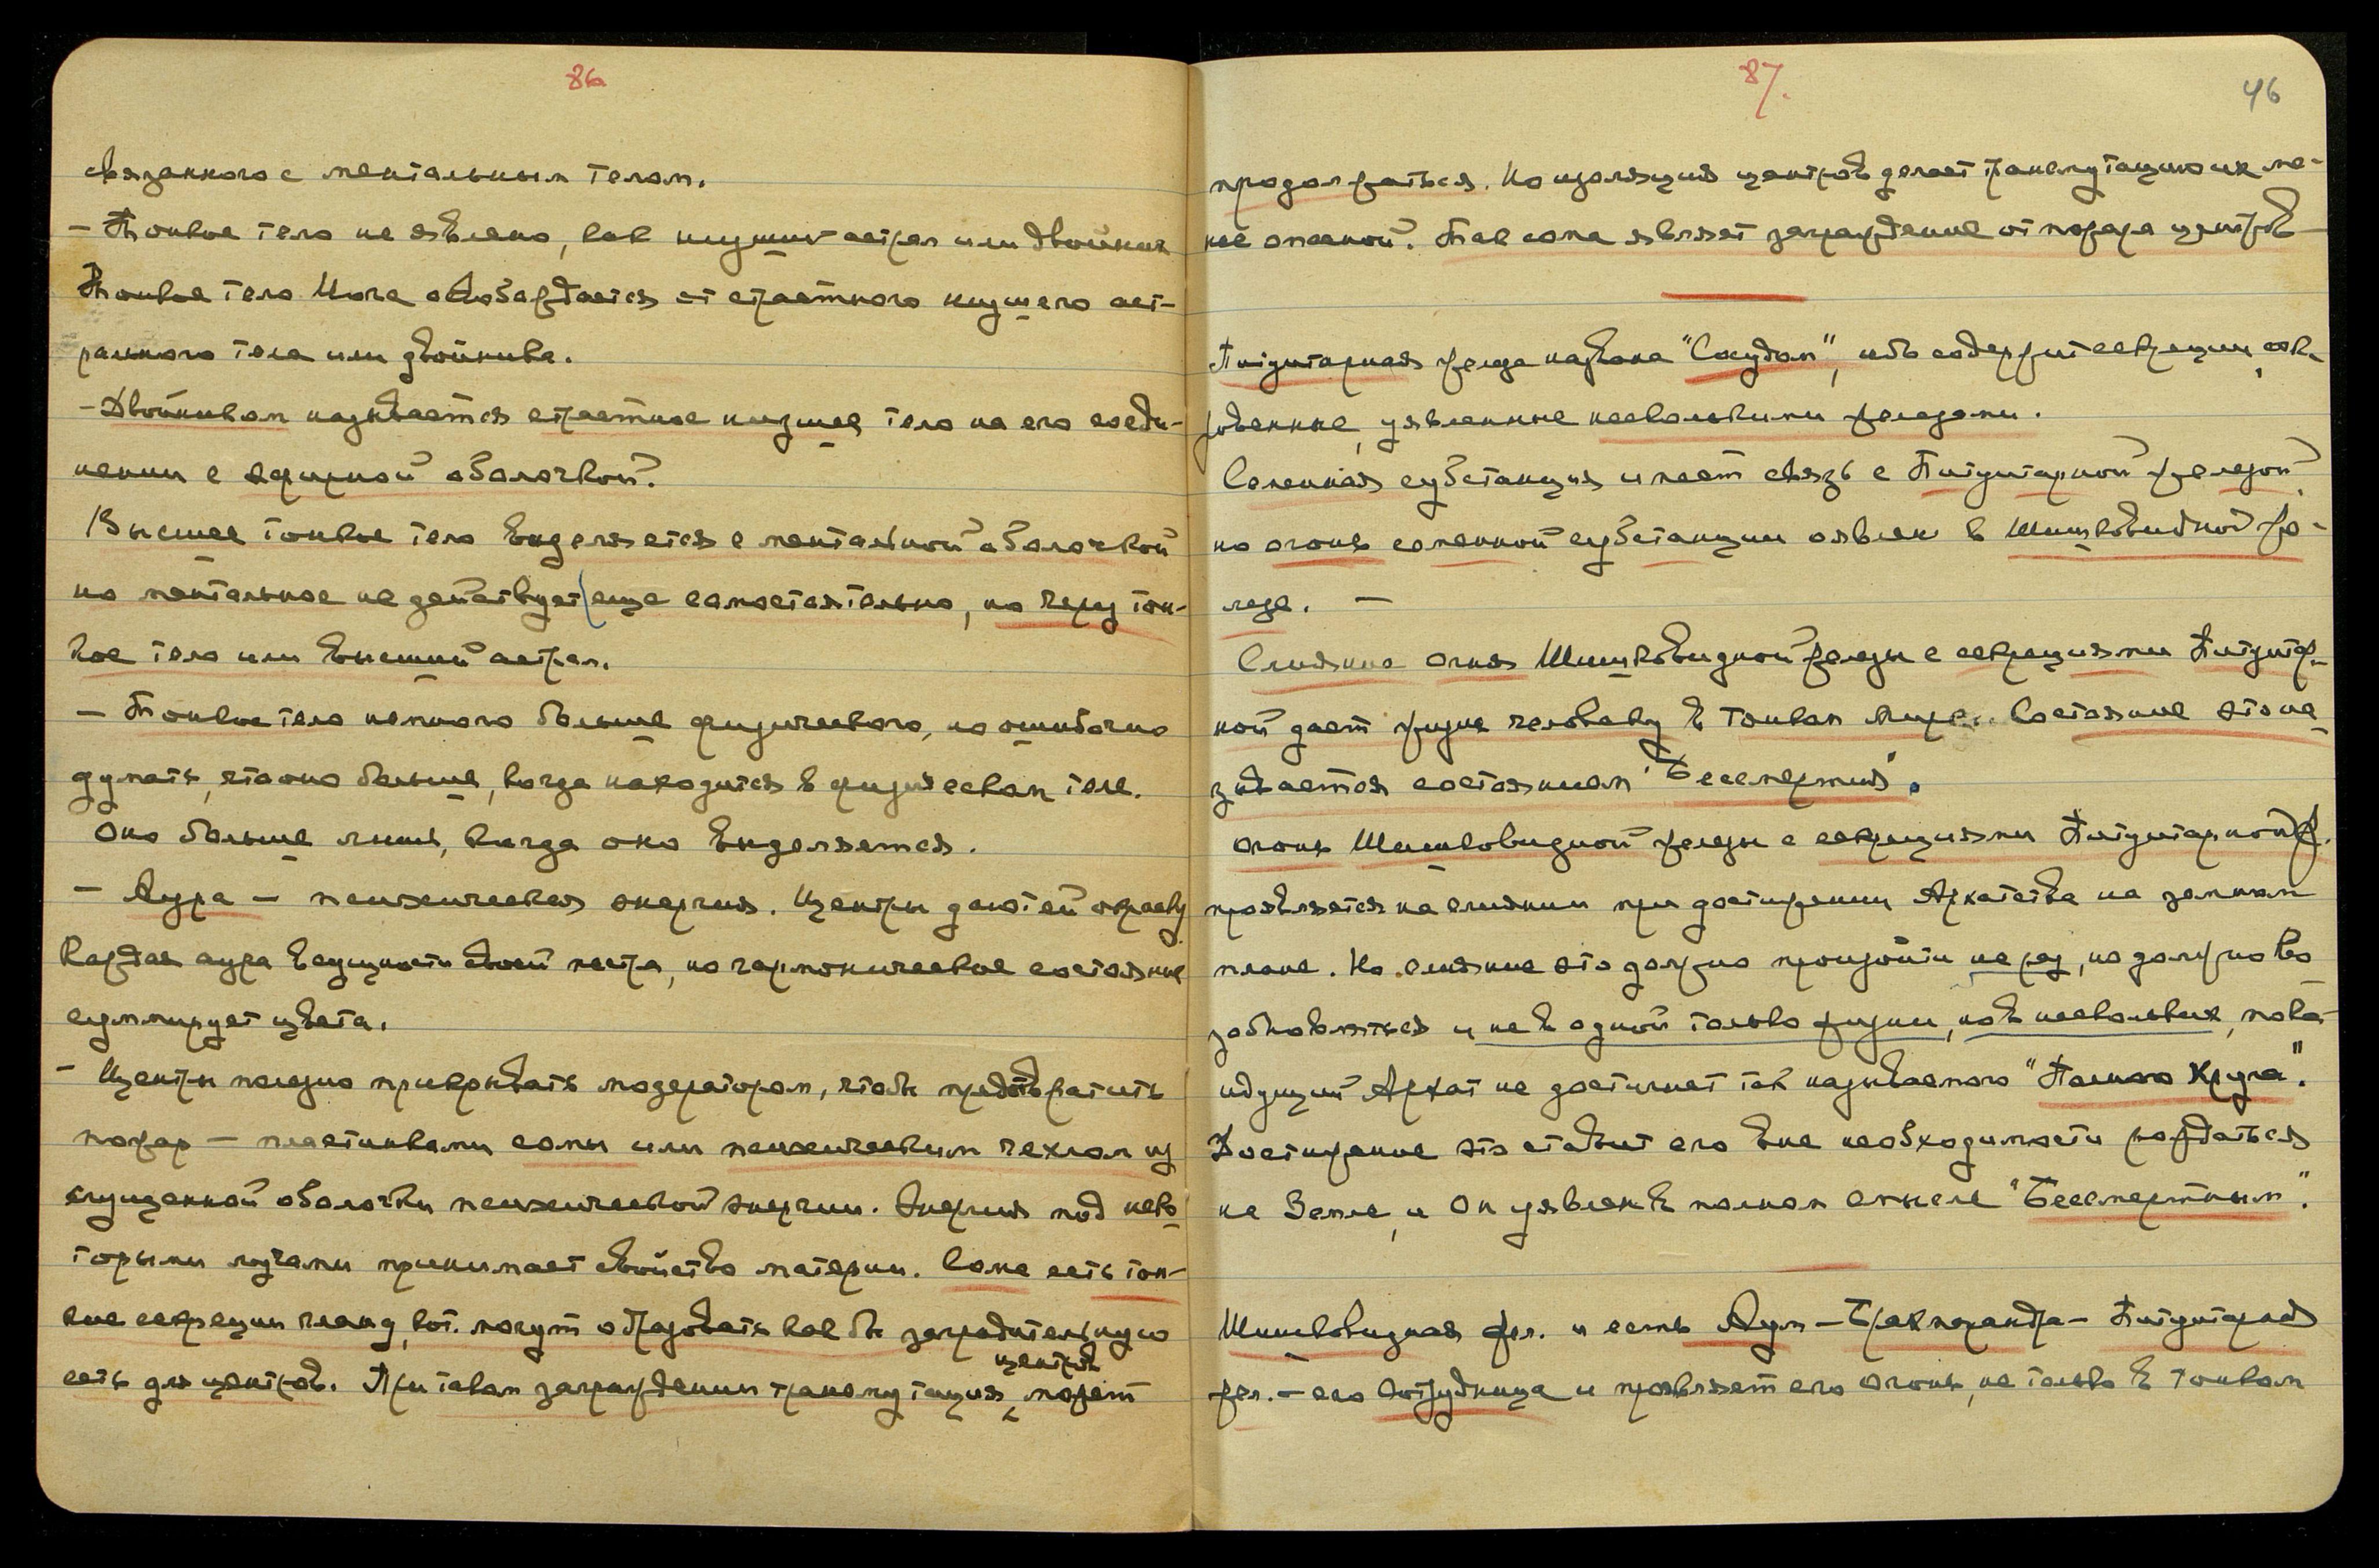 86
связанного с ментальным телом.
- Тонкое тело не явлено, как низший астрал или двойник
Тонкое тело Йога освобождается от страстного низшего аст-
рального тела или двойника.
- Двойником называется страстное низшее тело на его соеди-
нении с эфирной оболочкой.
Высшее тонкое тело выделяется с ментальной оболочкой
но ментальное не действует еще самостоятельно, но через тон-
кое тело или высший астрал.
- Тонкое тело немного больше физического, но ошибочно
думать, что оно больше, когда находится в физическом теле.
Оно больше лишь, когда оно выделяется.
- Аура - психическая энергия. Центры дают ей окраску
Каждая аура в сущности своей пестра, но гармоническое состояние
суммирует цвета.
- Центры полезно прикрывать модератором, чтобы предотвратить
пожар - пластинками сомы или психическим чехлом из
сгущенной оболочки психической энергии. Энергия под неко-
торыми лучами принимает свойство материи. Сома есть тон-
кие секреции гланд, кот. могут образовать как бы заградительную
сеть для центров. При таком заграждении трансмутация центров может
87.
46
продолжаться. Но изоляция центров делает трансмутацию их ме-
нее опасной. Так сома являет заграждение от пожара центров -
Питуитарная железа названа "Сосудом", ибо содержит секреции, ок.
рожденные, уявленные несколькими железами.
Семенная субстанция имеет связь с Питуитарной железой,
но огонь семенной субстанции оявлен в Шишковидной же-
лезе. -
Слияние огня Шишковидной железы с секрециями Питуитар-
ной дает жизнь человеку в Тонком Мире. Состояние это на-
зывается состоянием "Бессмертия".
Огонь Шишковидной железы с секрециями Питуитарной ж.
проявляется на слиянии при достижении Архатства на земном
плане. Но слияние это должно произойти не раз, но должно во
зобновляться и не в одной только жизни, но в нескольких, пока
идущий Архат не достигнет так называемого "Полного Круга".
Достижение это ставит его вне необходимости рождаться
на Земле, и Он уявлен в полном смысле "Бессмертным".
Шишковидная жел. и есть Аум - Брахмарандра - Питуитарная
жел. - его Сотрудница и проявляет его огонь, не только в Тонком